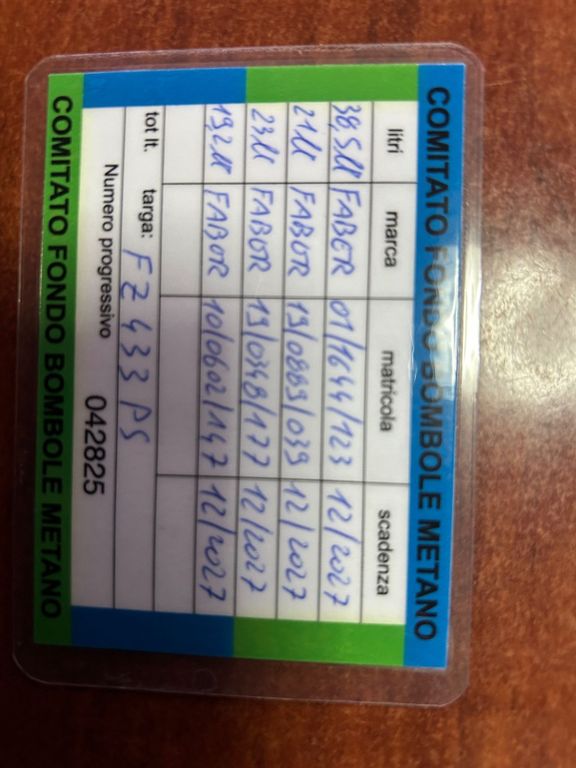 COMITATO FONDO BOMBOLE METANO
litri marca matricola scadenza
38,5 lt FABER 01/1644/123 12/2027
21 lt FABOR 19/0889/039 12/2027
23 lt FABOR 19/0348/177 12/2027
19,2 lt FABOR 10/0602/147 12/2027
tot lt. targa: FZ433PS
Numero progressivo 042825
COMITATO FONDO BOMBOLE METANO